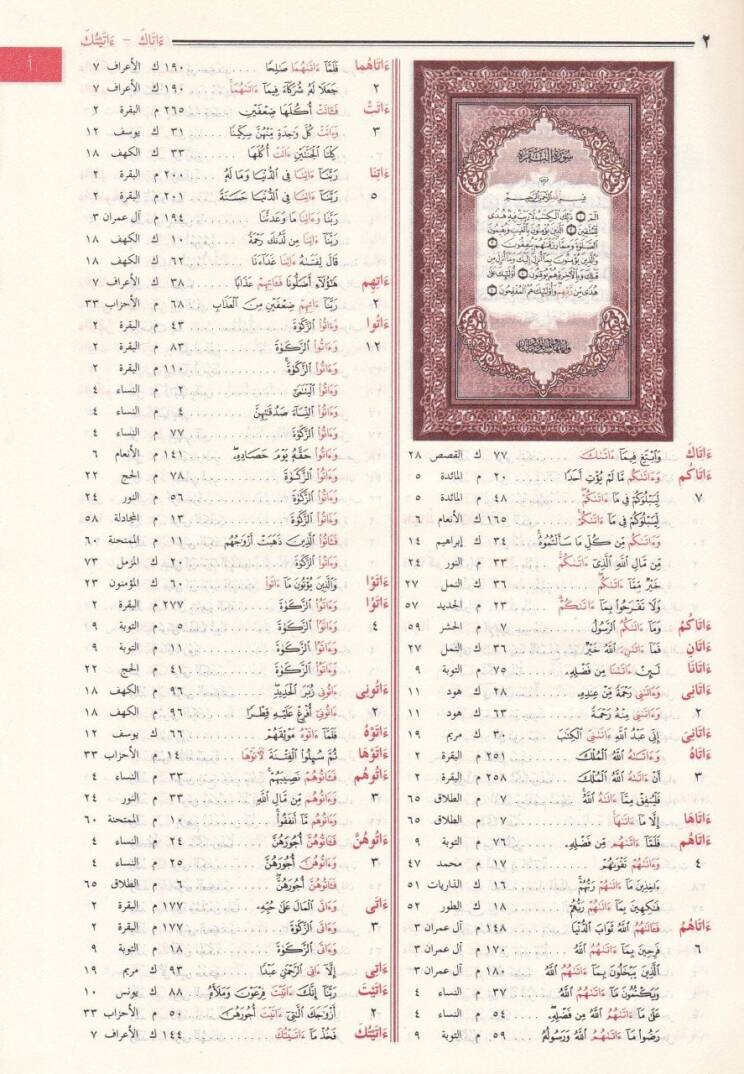 ٢
ءَاتَاكَ - ءَاتَيْتُكَ
أ
سورة البقرة
بِسْمِ اللَّهِ الرَّحْمَٰنِ الرَّحِيمِ
الٓمٓ ۝ ذَٰلِكَ الْكِتَٰبُ لَا رَيْبَ فِيهِ هُدًى
لِّلْمُتَّقِينَ ۝ الَّذِينَ يُؤْمِنُونَ بِالْغَيْبِ وَيُقِيمُونَ
الصَّلَوٰةَ وَمِمَّا رَزَقْنَٰهُمْ يُنفِقُونَ ۝
وَالَّذِينَ يُؤْمِنُونَ بِمَا أُنزِلَ إِلَيْكَ وَمَا أُنزِلَ مِن
قَبْلِكَ وَبِالْآخِرَةِ هُمْ يُوقِنُونَ ۝ أُولَٰئِكَ عَلَىٰ
هُدًى مِّن رَّبِّهِمْ وَأُولَٰئِكَ هُمُ الْمُفْلِحُونَ ۝
ءَاتَاكَ وَابْتَغِ فِيمَآ ءَاتَىٰكَ ..... ٧٧ ك القصص ٢٨
ءَاتَاكُم وَءَاتَىٰكُم مَّا لَمْ يُؤْتِ أَحَدًا .. ٢٠ م المائدة ٥
٧ لِّيَبْلُوَكُمْ فِى مَآ ءَاتَىٰكُمْ ..... ٤٨ م المائدة ٥
لِّيَبْلُوَكُمْ فِى مَآ ءَاتَىٰكُمْ ..... ١٦٥ ك الأنعام ٦
وَءَاتَىٰكُم مِّن كُلِّ مَا سَأَلْتُمُوهُ .. ٣٤ ك إبراهيم ١٤
مِّن مَّالِ اللَّهِ الَّذِىٓ ءَاتَىٰكُمْ ..... ٣٣ م النور ٢٤
خَيْرٌ مِّمَّآ ءَاتَىٰكُم ..... ٣٦ ك النمل ٢٧
وَلَا تَفْرَحُوا بِمَآ ءَاتَىٰكُمْ ..... ٢٣ م الحديد ٥٧
ءَاتَاكُمُ وَمَآ ءَاتَىٰكُمُ الرَّسُولُ ..... ٧ م الحشر ٥٩
ءَاتَانِ فَمَآ ءَاتَىٰنِۦَ اللَّهُ خَيْرٌ ..... ٣٦ ك النمل ٢٧
ءَاتَانَا لَئِنْ ءَاتَىٰنَا مِن فَضْلِهِۦ ..... ٧٥ م التوبة ٩
ءَاتَانِى وَءَاتَىٰنِى رَحْمَةً مِّنْ عِندِهِۦ ..... ٢٨ ك هود ١١
٢ وَءَاتَىٰنِى مِنْهُ رَحْمَةً ..... ٦٣ ك هود ١١
ءَاتَانِىَ إِنِّى عَبْدُ اللَّهِ ءَاتَىٰنِىَ الْكِتَٰبَ ..... ٣٠ ك مريم ١٩
ءَاتَاهُ وَءَاتَىٰهُ اللَّهُ الْمُلْكَ ..... ٢٥١ م البقرة ٢
٣ أَنْ ءَاتَىٰهُ اللَّهُ الْمُلْكَ ..... ٢٥٨ م البقرة ٢
فَلْيُنفِقْ مِمَّآ ءَاتَىٰهُ اللَّهُ ..... ٧ م الطلاق ٦٥
ءَاتَاهَا إِلَّا مَآ ءَاتَىٰهَا ..... ٧ م الطلاق ٦٥
ءَاتَاهُم فَلَمَّآ ءَاتَىٰهُم مِّن فَضْلِهِۦ ..... ٧٦ م التوبة ٩
٤ وَءَاتَىٰهُمْ تَقْوَىٰهُمْ ..... ١٧ م محمد ٤٧
ءَاخِذِينَ مَآ ءَاتَىٰهُمْ رَبُّهُمْ ..... ١٦ ك الذاريات ٥١
فَٰكِهِينَ بِمَآ ءَاتَىٰهُمْ رَبُّهُمْ ..... ١٨ ك الطور ٥٢
ءَاتَاهُمُ فَـَٔاتَىٰهُمُ اللَّهُ ثَوَابَ الدُّنْيَا ..... ١٤٨ م آل عمران ٣
٦ فَرِحِينَ بِمَآ ءَاتَىٰهُمُ اللَّهُ ..... ١٧٠ م آل عمران ٣
الَّذِينَ يَبْخَلُونَ بِمَآ ءَاتَىٰهُمُ اللَّهُ ..... ١٨٠ م آل عمران ٣
وَيَكْتُمُونَ مَآ ءَاتَىٰهُمُ اللَّهُ ..... ٣٧ م النساء ٤
عَلَىٰ مَآ ءَاتَىٰهُمُ اللَّهُ مِن فَضْلِهِۦ .. ٥٤ م النساء ٤
رَضُوا مَآ ءَاتَىٰهُمُ اللَّهُ وَرَسُولُهُ .. ٥٩ م التوبة ٩
ءَاتَاهُمَا فَلَمَّآ ءَاتَىٰهُمَا صَٰلِحًا ..... ١٩٠ ك الأعراف ٧
٢ جَعَلَا لَهُۥ شُرَكَآءَ فِيمَآ ءَاتَىٰهُمَا ..... ١٩٠ ك الأعراف ٧
ءَاتَتْ فَـَٔاتَتْ أُكُلَهَا ضِعْفَيْنِ ..... ٢٦٥ م البقرة ٢
٣ وَءَاتَتْ كُلَّ وَٰحِدَةٍ مِّنْهُنَّ سِكِّينًا .. ٣١ ك يوسف ١٢
كِلْتَا الْجَنَّتَيْنِ ءَاتَتْ أُكُلَهَا ..... ٣٣ ك الكهف ١٨
ءَاتِنَا رَبَّنَآ ءَاتِنَا فِى الدُّنْيَا وَمَا لَهُ .. ٢٠٠ م البقرة ٢
٥ رَبَّنَآ ءَاتِنَا فِى الدُّنْيَا حَسَنَةً ..... ٢٠١ م البقرة ٢
رَبَّنَا وَءَاتِنَا مَا وَعَدتَّنَا ..... ١٩٤ م آل عمران ٣
رَبَّنَآ ءَاتِنَا مِن لَّدُنكَ رَحْمَةً ..... ١٠ ك الكهف ١٨
قَالَ لِفَتَىٰهُ ءَاتِنَا غَدَآءَنَا ..... ٦٢ ك الكهف ١٨
ءَاتِهِم هَٰٓؤُلَآءِ أَضَلُّونَا فَـَٔاتِهِمْ عَذَابًا ..... ٣٨ ك الأعراف ٧
٢ رَبَّنَآ ءَاتِهِمْ ضِعْفَيْنِ مِنَ الْعَذَابِ .. ٦٨ م الأحزاب ٣٣
ءَاتُوا وَءَاتُوا الزَّكَوٰةَ ..... ٤٣ م البقرة ٢
١٢ وَءَاتُوا الزَّكَوٰةَ ..... ٨٣ م البقرة ٢
وَءَاتُوا الزَّكَوٰةَ ..... ١١٠ م البقرة ٢
وَءَاتُوا الْيَتَٰمَىٰٓ ..... ٢ م النساء ٤
وَءَاتُوا النِّسَآءَ صَدُقَٰتِهِنَّ ..... ٤ م النساء ٤
وَءَاتُوا الزَّكَوٰةَ ..... ٧٧ م النساء ٤
وَءَاتُوا حَقَّهُۥ يَوْمَ حَصَادِهِۦ ..... ١٤١ م الأنعام ٦
وَءَاتُوا الزَّكَوٰةَ ..... ٧٨ م الحج ٢٢
وَءَاتُوا الزَّكَوٰةَ ..... ٥٦ م النور ٢٤
وَءَاتُوا الزَّكَوٰةَ ..... ١٣ م المجادلة ٥٨
فَـَٔاتُوا الَّذِينَ ذَهَبَتْ أَزْوَٰجُهُم .. ١١ م الممتحنة ٦٠
وَءَاتُوا الزَّكَوٰةَ ..... ٢٠ ك المزمل ٧٣
ءَاتَوْا وَالَّذِينَ يُؤْتُونَ مَآ ءَاتَوا ..... ٦٠ ك المؤمنون ٢٣
ءَاتَوُا وَءَاتَوُا الزَّكَوٰةَ ..... ٢٧٧ م البقرة ٢
٤ وَءَاتَوُا الزَّكَوٰةَ ..... ٥ م التوبة ٩
وَءَاتَوُا الزَّكَوٰةَ ..... ١١ م التوبة ٩
وَءَاتَوُا الزَّكَوٰةَ ..... ٤١ م الحج ٢٢
ءَاتُونِى ءَاتُونِى زُبَرَ الْحَدِيدِ ..... ٩٦ ك الكهف ١٨
٢ ءَاتُونِىٓ أُفْرِغْ عَلَيْهِ قِطْرًا ..... ٩٦ ك الكهف ١٨
ءَاتَوْهُ فَلَمَّآ ءَاتَوْهُ مَوْثِقَهُمْ ..... ٦٦ ك يوسف ١٢
ءَاتَوْهَا ثُمَّ سُئِلُوا الْفِتْنَةَ لَـَٔاتَوْهَا ..... ١٤ م الأحزاب ٣٣
ءَاتُوهُم فَـَٔاتُوهُمْ نَصِيبَهُمْ ..... ٣٣ م النساء ٤
٣ وَءَاتُوهُم مِّن مَّالِ اللَّهِ ..... ٣٣ م النور ٢٤
وَءَاتُوهُم مَّآ أَنفَقُوا ..... ١٠ م الممتحنة ٦٠
ءَاتُوهُنَّ فَـَٔاتُوهُنَّ أُجُورَهُنَّ ..... ٢٤ م النساء ٤
٣ وَءَاتُوهُنَّ أُجُورَهُنَّ ..... ٢٥ م النساء ٤
فَـَٔاتُوهُنَّ أُجُورَهُنَّ ..... ٦ م الطلاق ٦٥
ءَاتَى وَءَاتَى الْمَالَ عَلَىٰ حُبِّهِۦ ..... ١٧٧ م البقرة ٢
٣ وَءَاتَى الزَّكَوٰةَ ..... ١٧٧ م البقرة ٢
وَءَاتَى الزَّكَوٰةَ ..... ١٨ م التوبة ٩
ءَاتِى إِلَّآ ءَاتِى الرَّحْمَٰنِ عَبْدًا ..... ٩٣ ك مريم ١٩
ءَاتَيْتَ رَبَّنَآ إِنَّكَ ءَاتَيْتَ فِرْعَوْنَ وَمَلَأَهُ .. ٨٨ ك يونس ١٠
٢ أَزْوَٰجَكَ الَّٰتِىٓ ءَاتَيْتَ أُجُورَهُنَّ .. ٥٠ م الأحزاب ٣٣
ءَاتَيْتُكَ فَخُذْ مَآ ءَاتَيْتُكَ ..... ١٤٤ ك الأعراف ٧